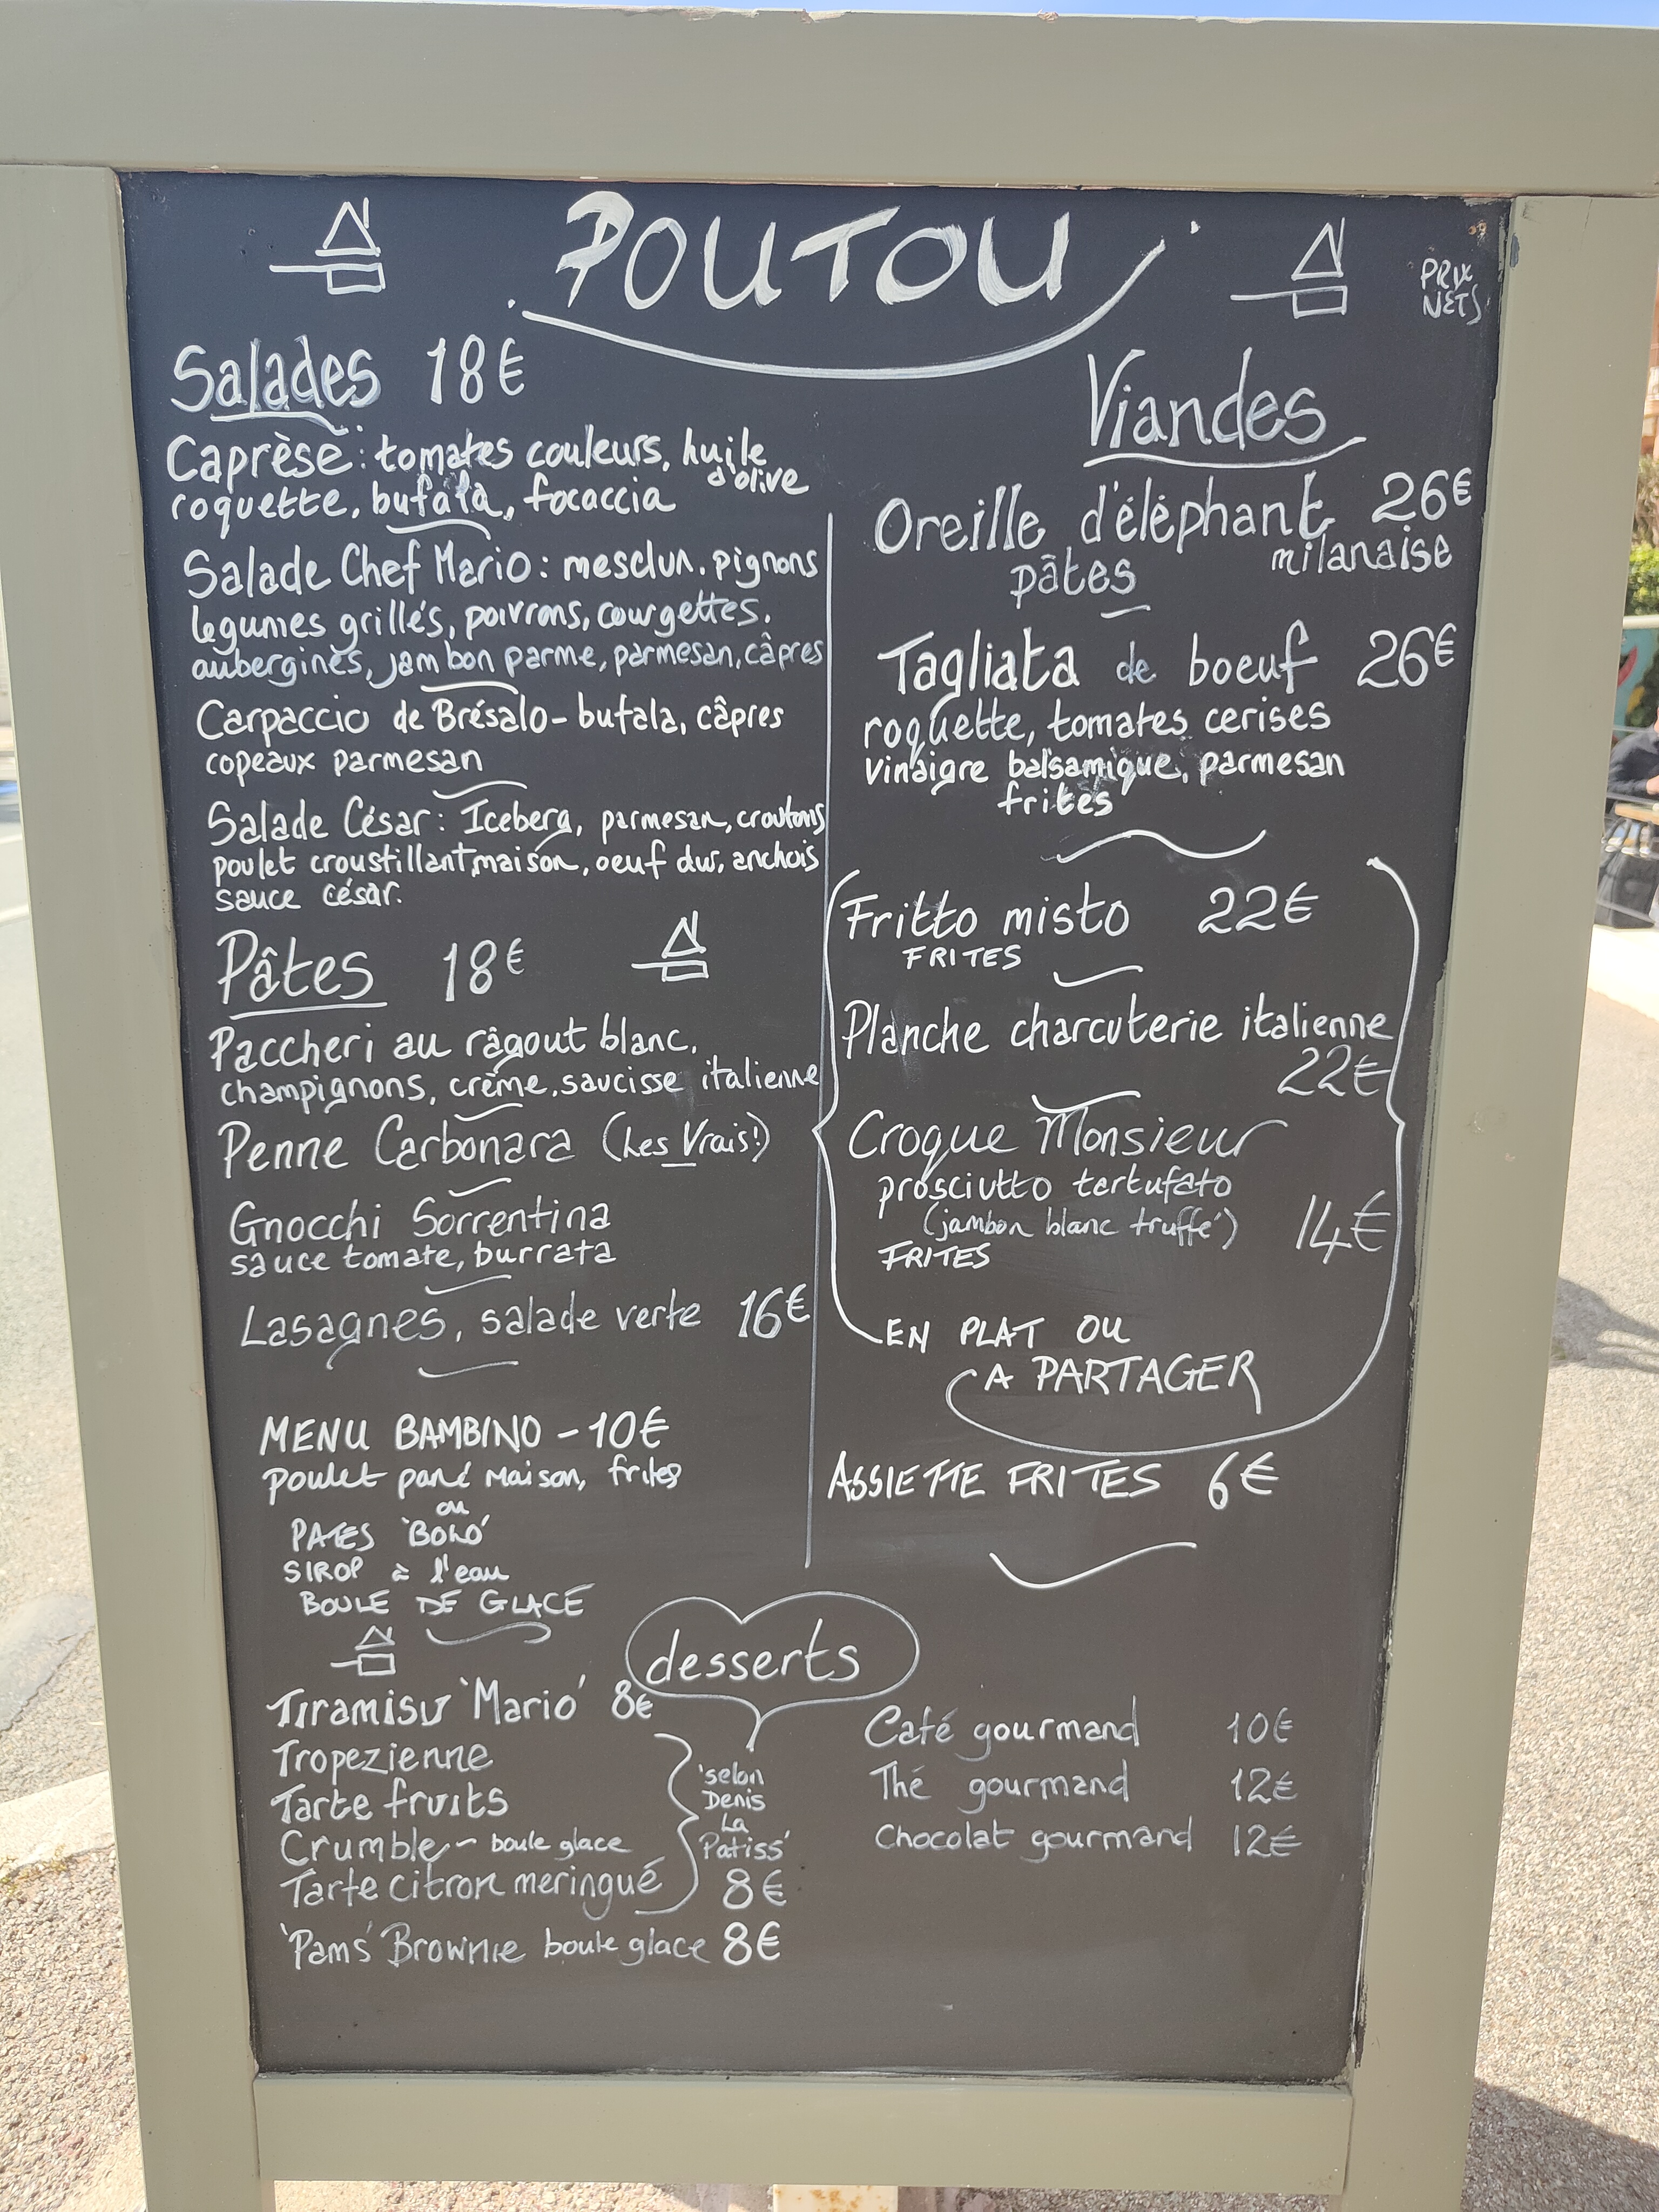 POUTOU
PRIX
NETS
Salades 18€
Caprèse : tomates couleurs, huile
d'olive
roquette, bufala, focaccia
Salade Chef Mario : mesclun, pignons
légumes grillés, poivrons, courgettes,
aubergines, jambon parme, parmesan, câpres
Carpaccio de Brésalo - bufala, câpres
copeaux parmesan
Salade César : Iceberg, parmesan, croutons
poulet croustillant, maison, oeuf dur, anchois
sauce césar.
Pâtes 18€
Paccheri au râgout blanc,
champignons, crème, saucisse italienne
Penne Carbonara (Les Vrais!)
Gnocchi Sorrentina
sauce tomate, burrata
Lasagnes, salade verte 16€
MENU BAMBINO - 10€
Poulet pané Maison, frites
ou
PATES 'BOLO'
SIROP à l'eau
BOULE DE GLACE
Viandes
Oreille d'éléphant 26€
milanaise
pâtes
Tagliata de boeuf 26€
roquette, tomates cerises
vinaigre balsamique, parmesan
frites
Fritto misto 22€
FRITES
Planche charcuterie italienne
22€
Croque Monsieur
prosciutto tartufato
(jambon blanc truffé) 14€
FRITES
EN PLAT OU
A PARTAGER
ASSIETTE FRITES 6€
desserts
Tiramisu 'Mario' 8€
Tropezienne
Tarte fruits
Crumble - boule glace
Tarte citron meringué
'selon
Denis
La
Patiss'
8€
'Pams' Brownie boule glace 8€
Café gourmand 10€
Thé gourmand 12€
Chocolat gourmand 12€